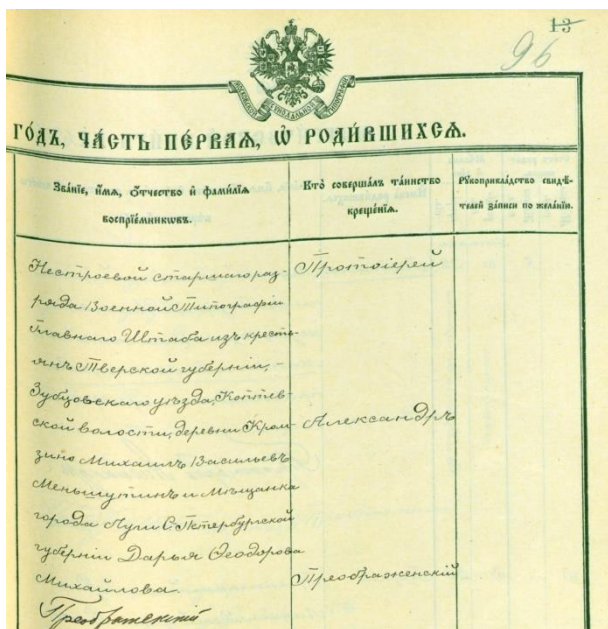 13
96
МОСКОВСКОЙ СѴНОДАЛЬНОЙ ТИПОГРАФІИ
ГО́ДЪ, ЧА́СТЬ ПЕ́РВАѦ, Ѽ РОДИ́ВШИХСѦ.
Зва́нїе, и҆́мѧ, ѻ҆́тчество и҆ фами́лїѧ воспрїе́мникѡвъ.
Кто̀ соверша́лъ та́инство креще́нїѧ.
Рꙋкоприкла́дство свидѣ́телей за́писи по жела́нїю.
Нестроевой старшаго раз-
ряда Военной Типографіи
Главнаго Штаба изъ кресть-
янъ Тверской губерніи,-
Зубцовскаго уѣзда, Коптев-
ской волости, деревни Кром-
зино Михаилъ Васильевъ
Меньшутинъ и Мѣщанка
города Луги С.Петербургской
губерніи Дарья Ѳеодорова
Михайлова.
Протоіерей
Александръ
Преображенскій
Преображенскій